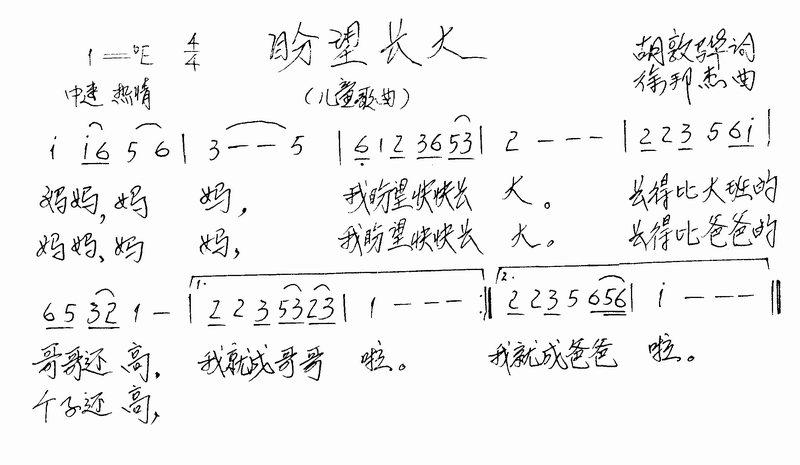 盼望长大
1=♭E 4/4
胡敦骅词
中速 热情
(儿童歌曲)
徐邦杰曲
i i6 5 6 | 3 - - 5 | 6 1 2 36 53 | 2 - - - | 2 2 3 5 6i |
妈妈,妈 妈, 我盼望快快长 大。 长得比大班的
妈妈、妈 妈, 我盼望快快长 大。 长得比爸爸的
6 5 32 1 - | 1. 2 2 3 53 23 | 1 - - - :|| 2. 2 2 3 5 656 | i - - - ||
哥哥还 高, 我就成哥哥 啦。 我就成爸爸 啦。
个子还 高,